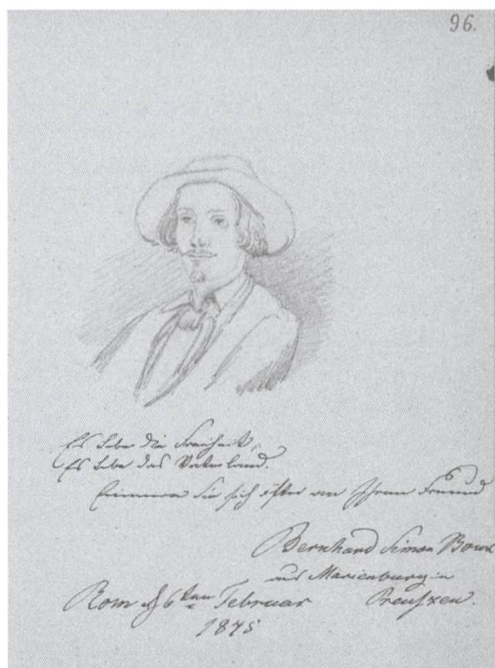 96.
Es lebe die Freiheit,
Es lebe das Vaterland.
Erinnern Sie sich öfter an Ihren Freund
Bernhard Simon
aus Marienburg in
Rom 6 ten Februar Preußen.